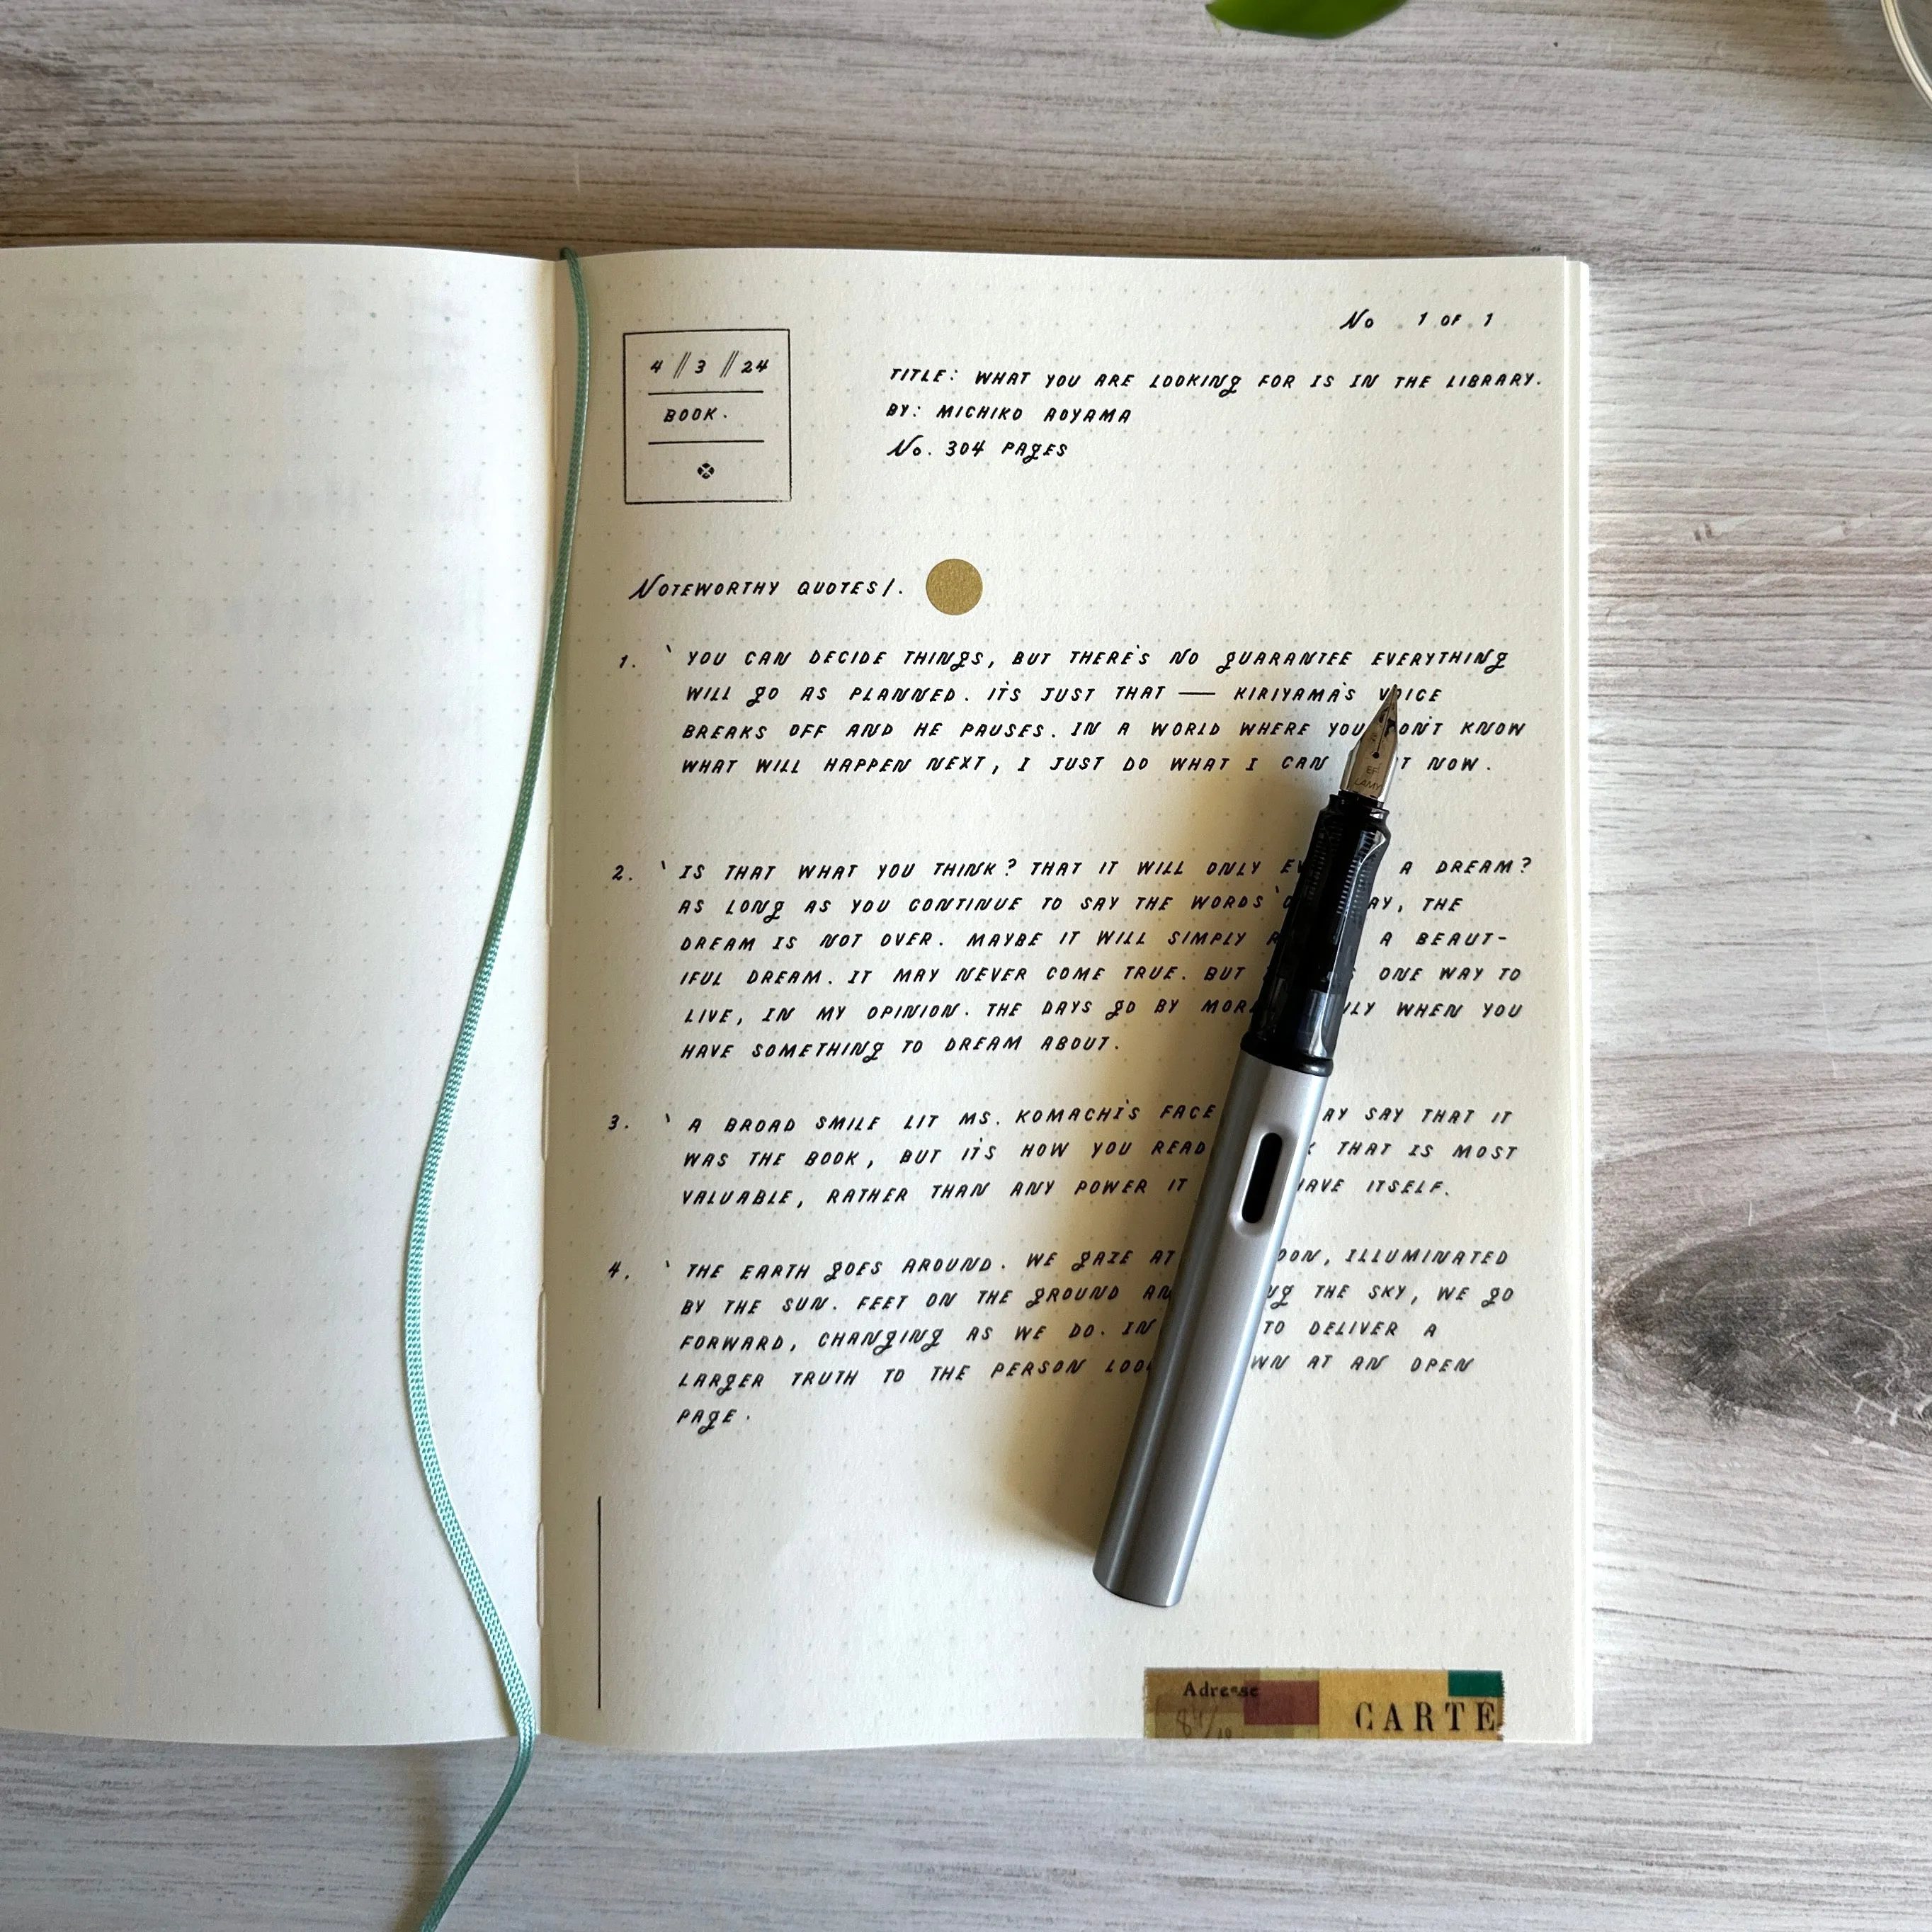 No 1 OF 1
4 // 3 // 24
BOOK.
TITLE: WHAT YOU ARE LOOKING FOR IS IN THE LIBRARY.
BY: MICHIKO AOYAMA
No. 304 PAGES
NOTEWORTHY QUOTES/.
1. ` YOU CAN DECIDE THINGS, BUT THERE'S NO GUARANTEE EVERYTHING
WILL GO AS PLANNED. IT'S JUST THAT — KIRIYAMA'S VOICE
BREAKS OFF AND HE PAUSES. IN A WORLD WHERE YOU DON'T KNOW
WHAT WILL HAPPEN NEXT, I JUST DO WHAT I CAN NOW.
2. ` IS THAT WHAT YOU THINK? THAT IT WILL ONLY A DREAM?
AS LONG AS YOU CONTINUE TO SAY THE WORDS THE
DREAM IS NOT OVER. MAYBE IT WILL SIMPLY A BEAUT-
IFUL DREAM. IT MAY NEVER COME TRUE. BUT ONE WAY TO
LIVE, IN MY OPINION. THE DAYS GO BY MORE WHEN YOU
HAVE SOMETHING TO DREAM ABOUT.
3. ` A BROAD SMILE LIT MS. KOMACHI'S FACE SAY THAT IT
WAS THE BOOK, BUT IT'S HOW YOU READ THAT IS MOST
VALUABLE, RATHER THAN ANY POWER IT HAVE ITSELF.
4. ` THE EARTH GOES AROUND. WE GAZE AT MOON, ILLUMINATED
BY THE SUN. FEET ON THE GROUND THE SKY, WE GO
FORWARD, CHANGING AS WE DO. IN TO DELIVER A
LARGER TRUTH TO THE PERSON AT AN OPEN
PAGE.
EF
LAMY
Adresse
CARTE